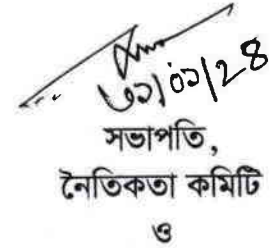 ৩১/০১/২৪
সভাপতি,
নৈতিকতা কমিটি
ও